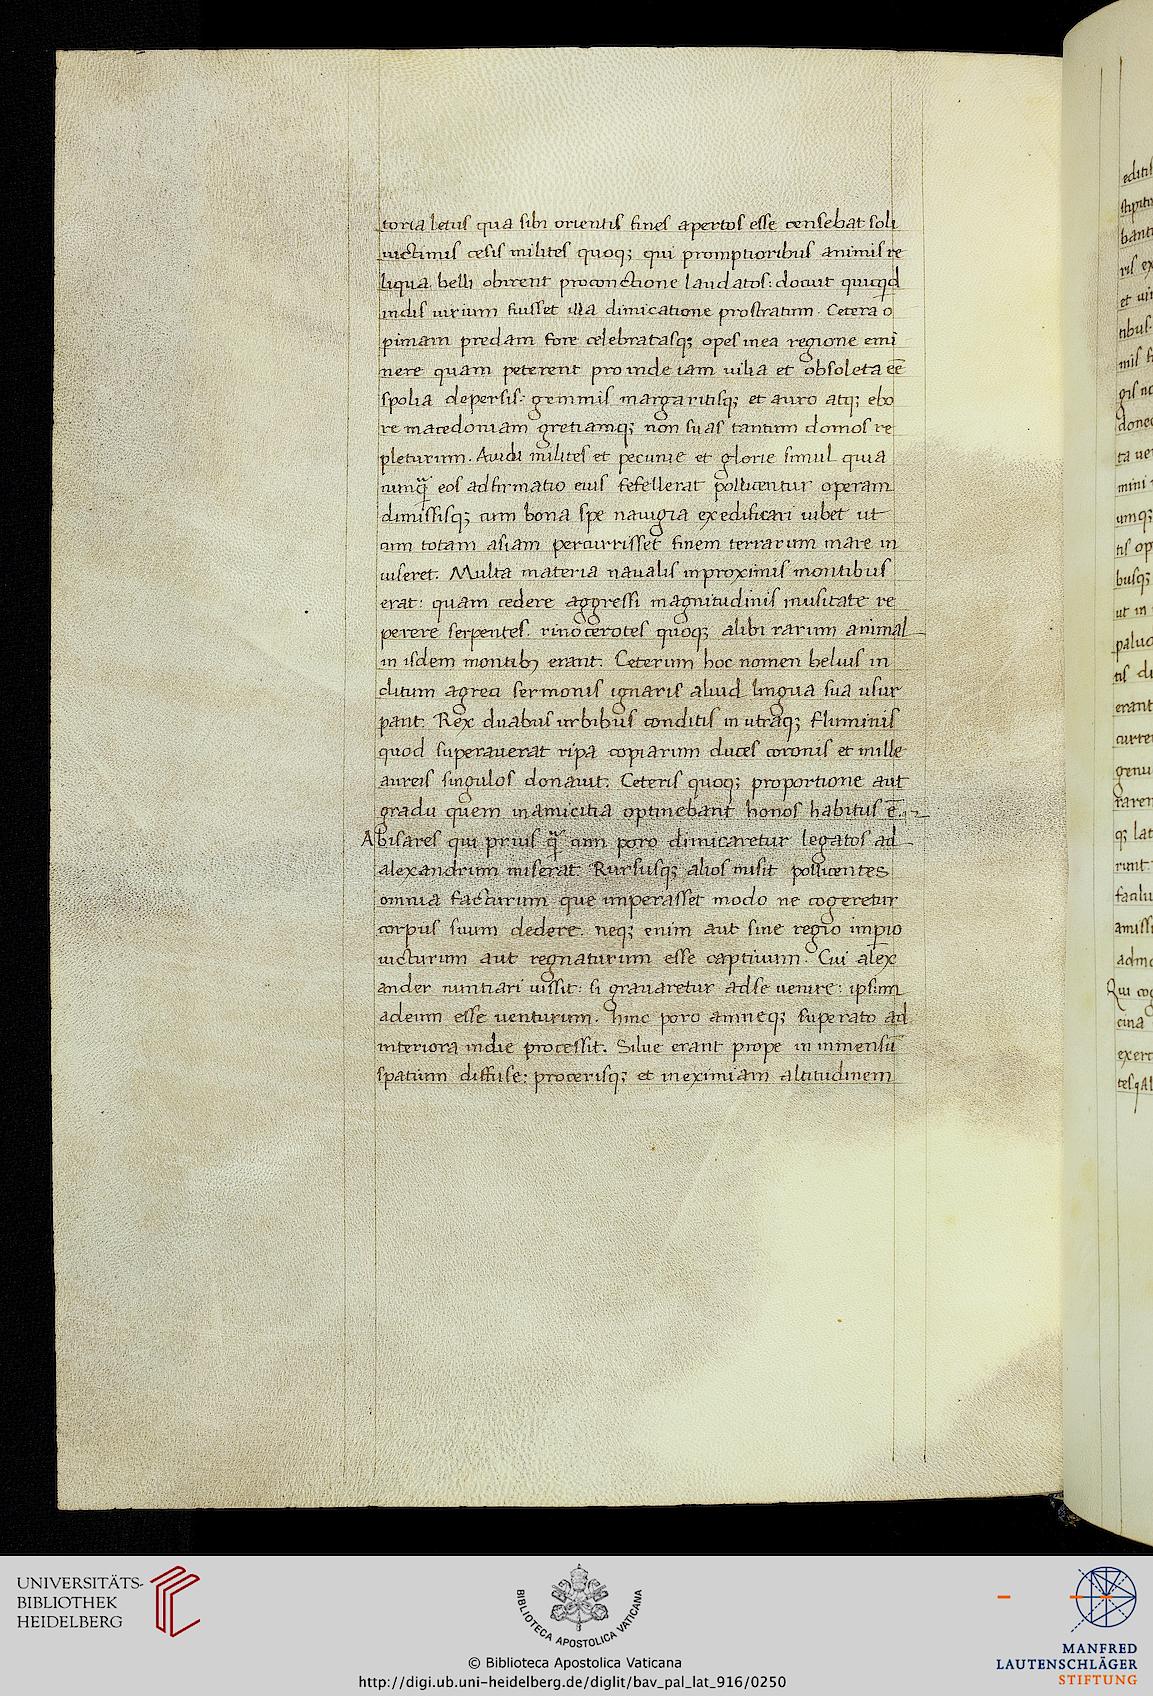 toria letus qua sibi orientis fines apertos esse censebat soli
uictimis cesis milites quoq; qui promptioribus animis re
liqua belli obirent pro conctione laudatos: docuit quicqd
indis uirium fuisset illa dimicatione prostratum. Cetera o
pimam predam fore celebratasq; opes in ea regione emi
nere quam peterent proinde iam uilia et obsoleta eē
spolia de persis: gemmis margaritisq; et auro atq; ebo
re macedoniam gretiamq; non suas tantum domos re
pleturum. Auidi milites et pecunie et glorie simul quia
nunq̄ eos adfirmatio eius fefellerat pollicentur operam
dimissisq; cum bona spe nauigia exedificari iubet ut
cum totam asiam percurrisset finem terrarum mare in
uiseret. Multa materia naualis in proximis montibus
erat: quam cedere aggressi magnitudinis inusitate re
perere serpentes. rinocerotes quoq; alibi rarum animal
in isdem montib; erant. Ceterum hoc nomen beluis in
ditum agreci sermonis ignaris aliud lingua sua usur
pant. Rex duabus urbibus conditis in utraq; fluminis
quod superauerat ripa copiarum duces coronis et mille
aureis singulos donauit. Ceteris quoq; pro portione aut
gradu quem in amicitia optinebant honos habitus ē.
Abisares qui prius q̄ cum poro dimicaretur legatos ad
alexandrum miserat. Rursusq; alios misit pollicentes
omnia facturum que imperasset modo ne cogeretur
corpus suum dedere. neq; enim aut sine regio imp̄io
uicturum aut regnaturum esse captiuum. Cui alex
ander nuntiari iussit: si grauaretur ad se uenire: ipsum
ad eum esse uenturum. hinc poro amneq; superato ad
interiora indie processit. Silue erant prope in inmensū
spatium diffuse: procerisq; et in eximiam altitudinem
editis
bant
ris ex
tibus.
erant
genu
q; lat
runt.
Qui cog
UNIVERSITÄTS-
BIBLIOTHEK
HEIDELBERG
BIBLIOTECA APOSTOLICA VATICANA
© Biblioteca Apostolica Vaticana
http://digi.ub.uni-heidelberg.de/diglit/bav_pal_lat_916/0250
MANFRED
LAUTENSCHLÄGER
STIFTUNG